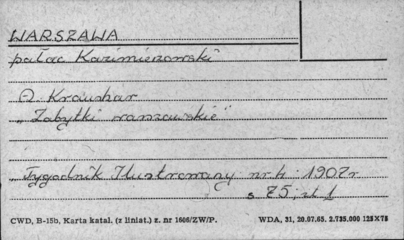 WARSZAWA
pałac Kazimierowski
A. Kraushar
"Zabytki warszawskie"
"Tygodnik Ilustrowany nr 4 : 1907 r
s 75, il. 1
CWD, B-15b, Karta katal. (z liniat.) z. nr 1606/ZW/P. WDA, 31, 20.07.65. 2.735.000 125X75